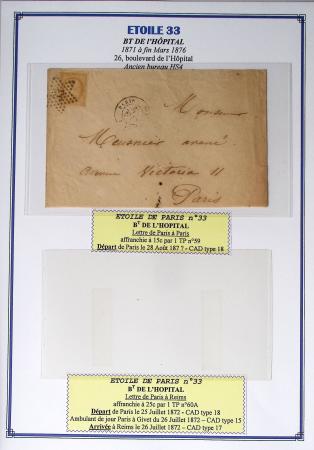 ETOILE 33
BT DE L'HÔPITAL
1871 à fin Mars 1876
26, boulevard de l'Hôpital
Ancien bureau HS4
PARIS
Monsieur
Meusnier avoué
Avenue Victoria 11
Paris
ETOILE DE PARIS n°33
BT DE L'HOPITAL
Lettre de Paris à Paris
affranchie à 15c par 1 TP n°59
Départ de Paris le 28 Août 187 ? - CAD type 18
ETOILE DE PARIS n°33
BT DE L'HOPITAL
Lettre de Paris à Reims
affranchie à 25c par 1 TP n°60A
Départ de Paris le 25 Juillet 1872 - CAD type 18
Ambulant de jour Paris à Givet du 26 Juillet 1872 - CAD type 15
Arrivée à Reims le 26 Juillet 1872 - CAD type 17